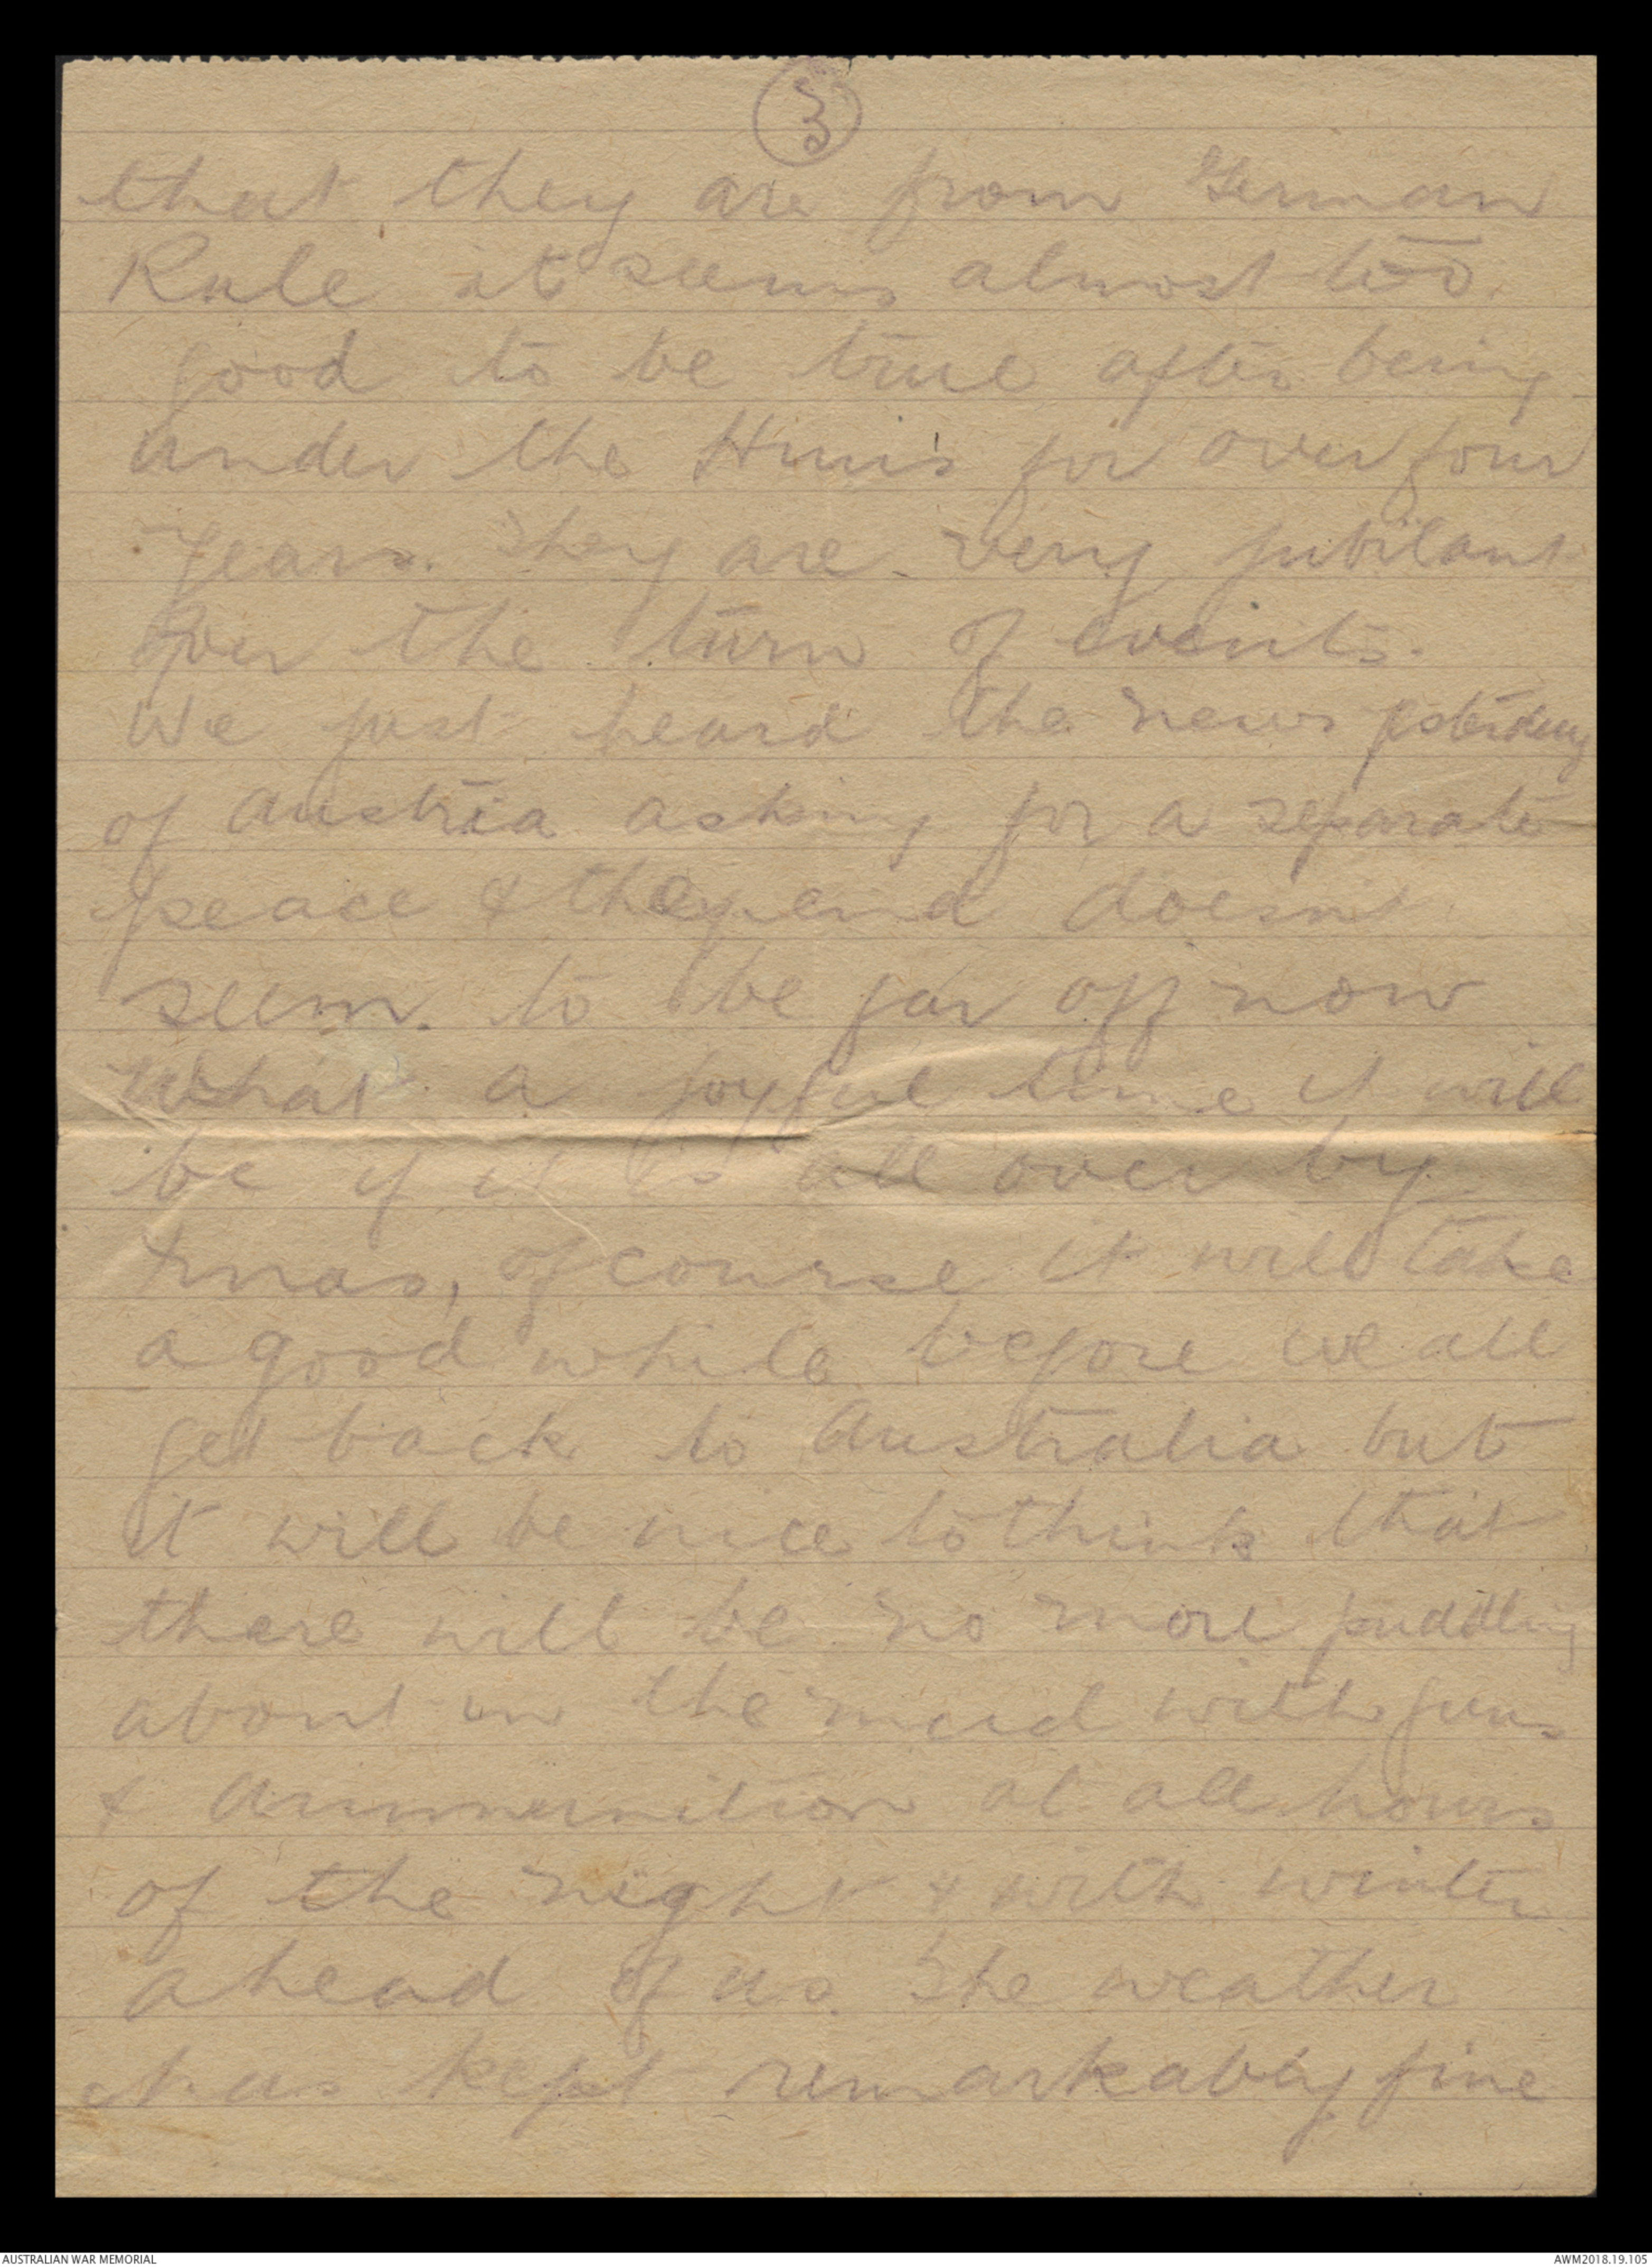 3
that they are from German
Rule it seems almost too
good to be true after being
under the Hun's for over four
years. They are very jubilant
over the turn of events.
We just heard the news yesterday
of Austria asking for a separate
peace & the end doesn't
seem to be far off now
What a joyful time it will
be if it is all over by
Xmas, of course it will take
a good while before we all
get back to Australia but
it will be nice to think that
there will be no more puddling
about in the mud with guns
& ammunition at all hours
of the night & with winter
ahead of us. The weather
has kept remarkably fine
AUSTRALIAN WAR MEMORIAL
AWM2018.19.105